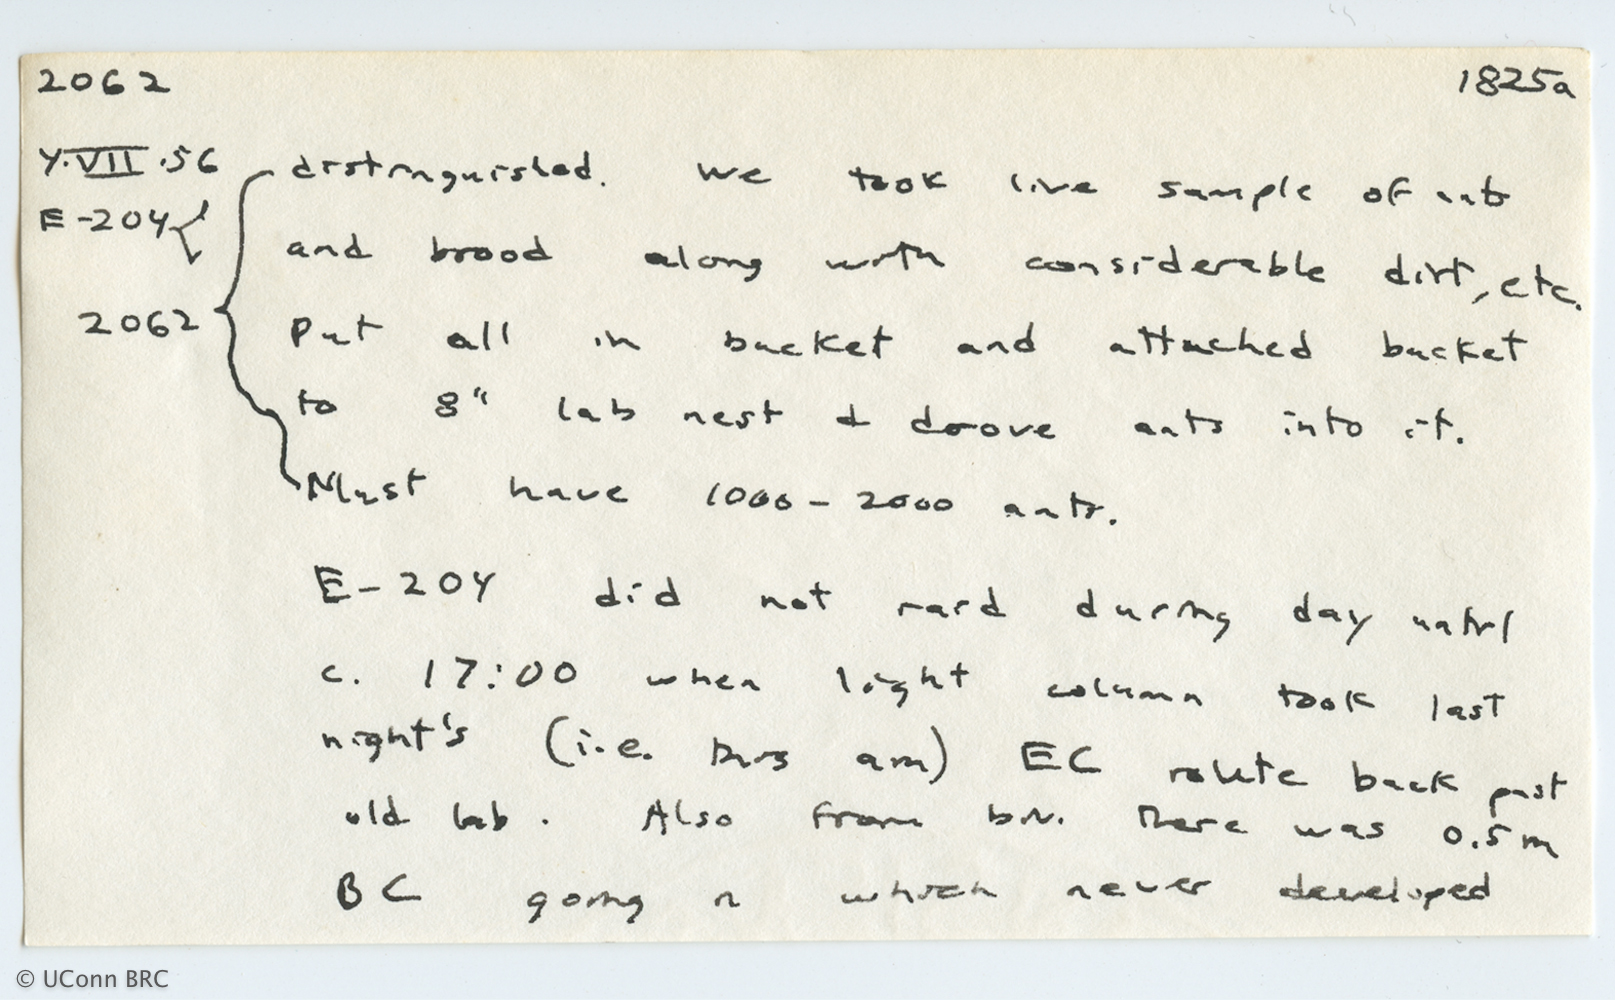 2062 1825a
4.VII.56 distinguished. We took live sample of ants
E-204
and brood along with considerable dirt, etc.
2062 Put all in bucket and attached bucket
to 8" lab nest & droove ants into it.
Must have 1000-2000 ants.
E-204 did not raid during day until
c. 17:00 when light column took last
night's (i.e. this am) EC route back past
old lab. Also from biv. there was 0.5m
BC going n which never developed
© UConn BRC